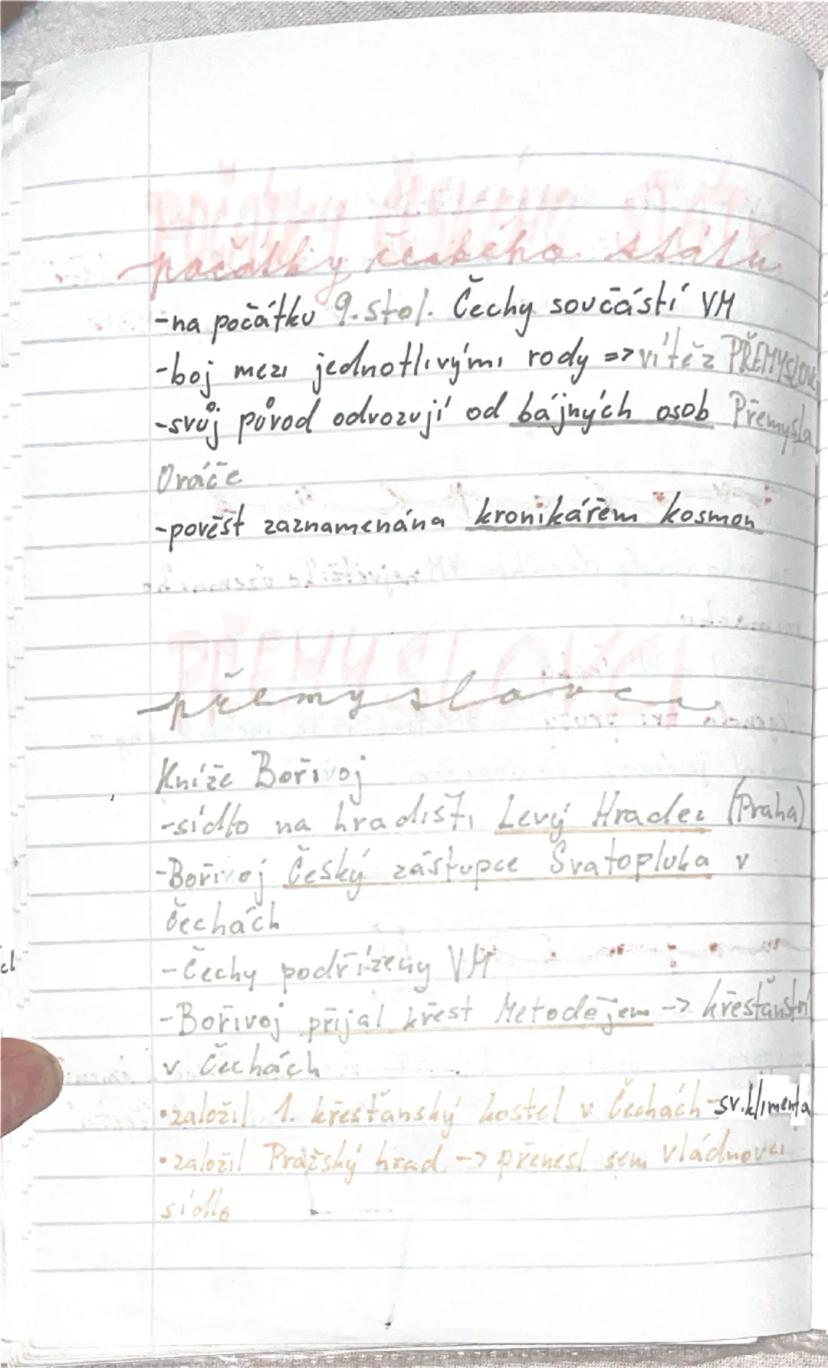 POČÁTKY ČESKÉHO STÁTU
počátky českého státu
-na počátku 9. stol. Čechy součástí VM
-boj mezi jednotlivými rody => vítěz PŘEMYSLOVCI
-svůj původ odvozují od bájných osob Přemysla
Oráče
-pověst zaznamenána kronikářem kosmon
PŘEMYSLOVCI
přemyslovci
Kníže Bořivoj
-sídlo na hradišti Levý Hradec (Praha)
-Bořivoj Český zástupce Svatopluka v
Čechách
-Čechy podřízeny VM
-Bořivoj přijal křest Metodějem -> křesťanství
v Čechách
•založil 1. křesťanský kostel v Čechách-sv.klimenta
•založil Pražský hrad -> přenesl sem vládnoucí
sídlo